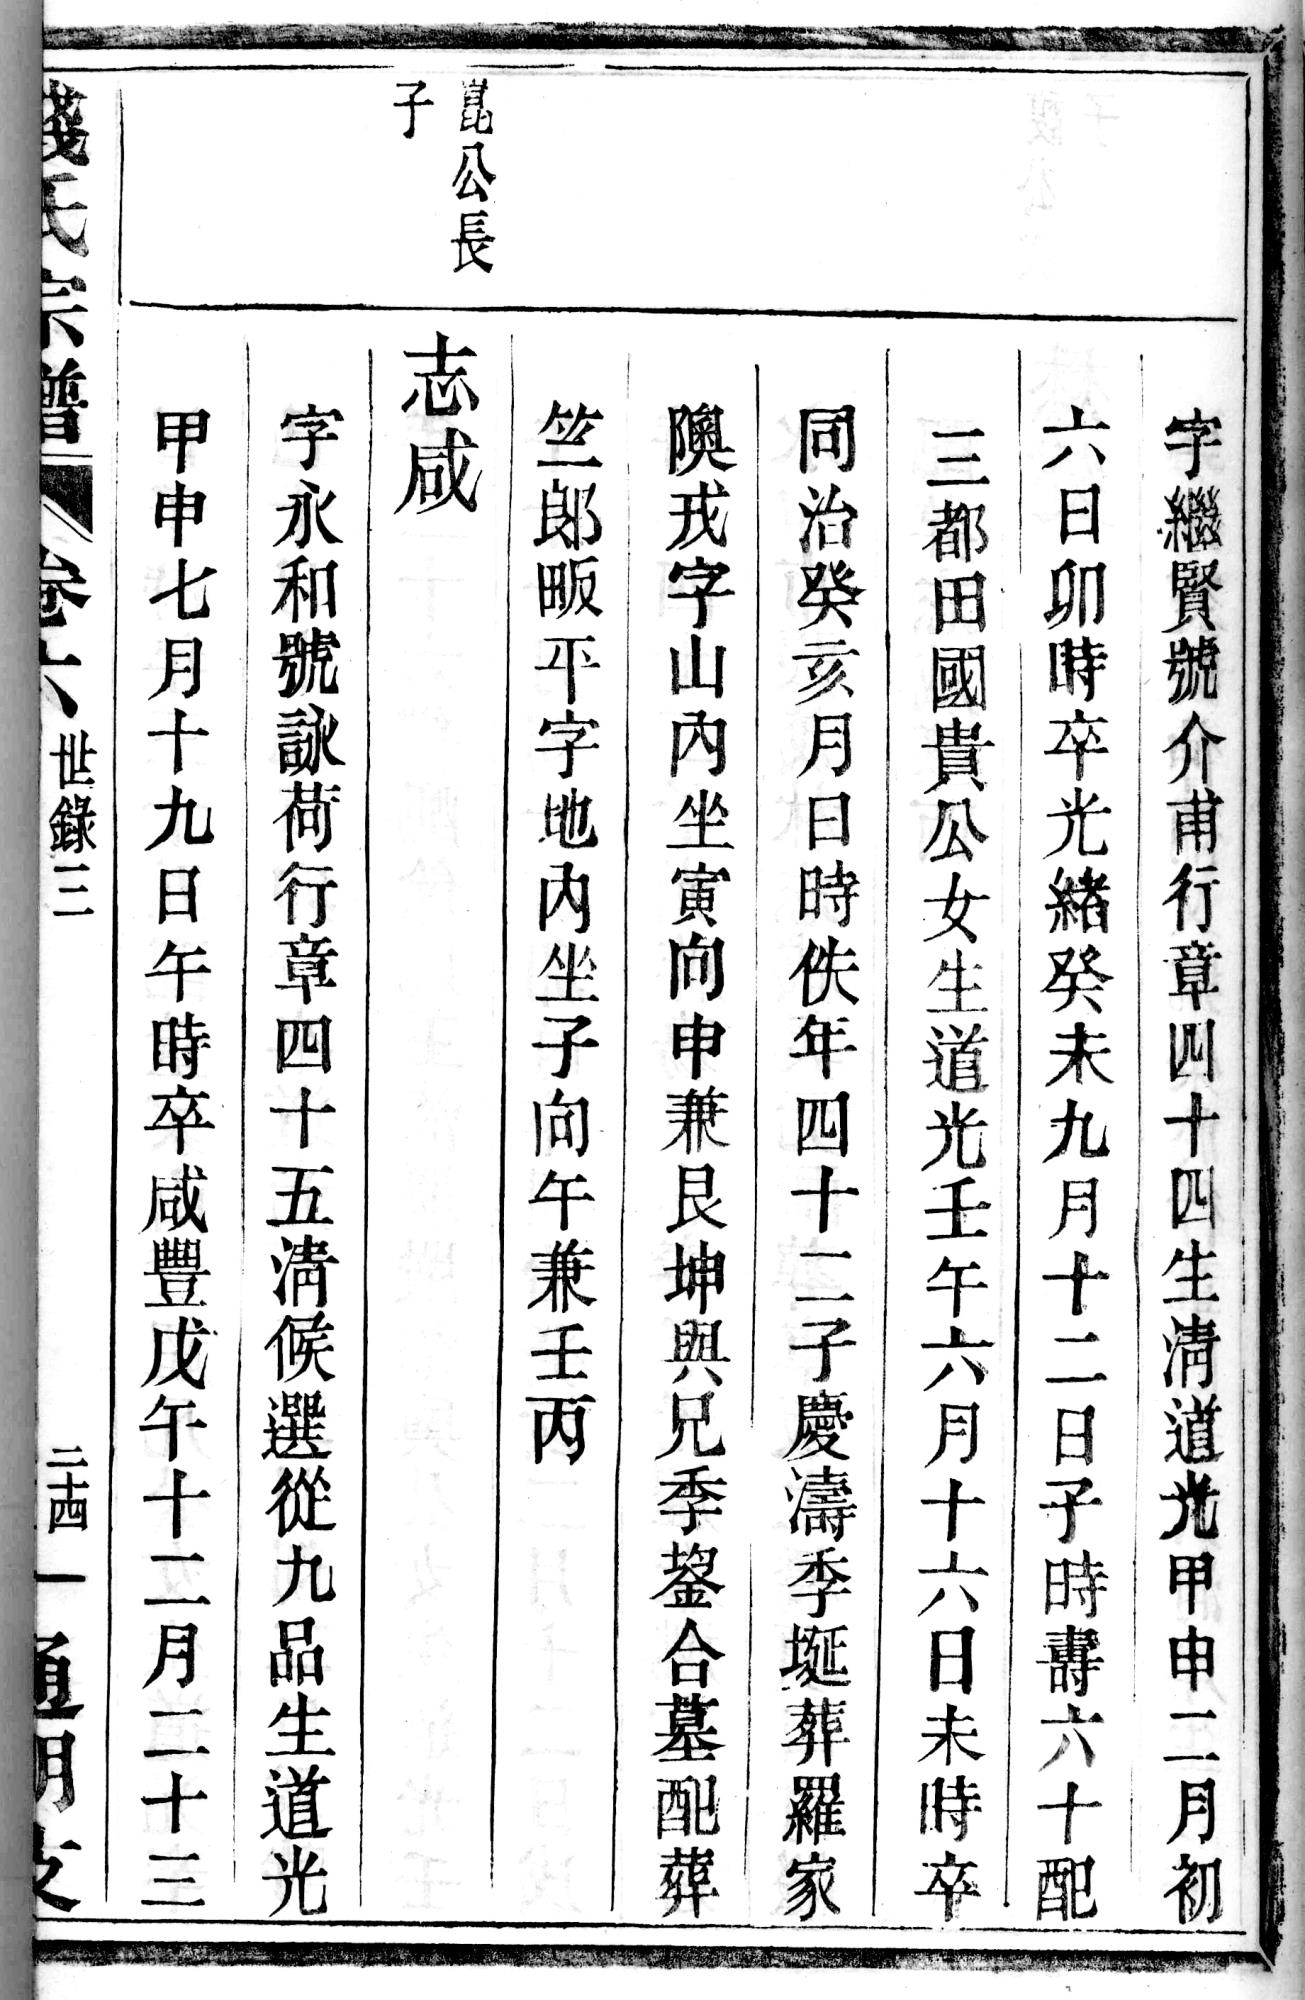 字繼賢號介甫行章四十四生清道光甲申二月初
六日卯時卒光緒癸未九月十二日子時壽六十配
三都田國貴公女生道光壬午六月十六日未時卒
同治癸亥月日時佚年四十二子慶濤季埏葬羅家
隩戎字山內坐寅向申兼艮坤與兄季鋆合墓配葬
竺郎畈平字地內坐子向午兼壬丙
崑公長
子
志咸
字永和號詠荷行章四十五清候選從九品生道光
甲申七月十九日午時卒咸豐戊午十二月二十三
錢氏宗譜
卷六
世錄三
二十四
通明支